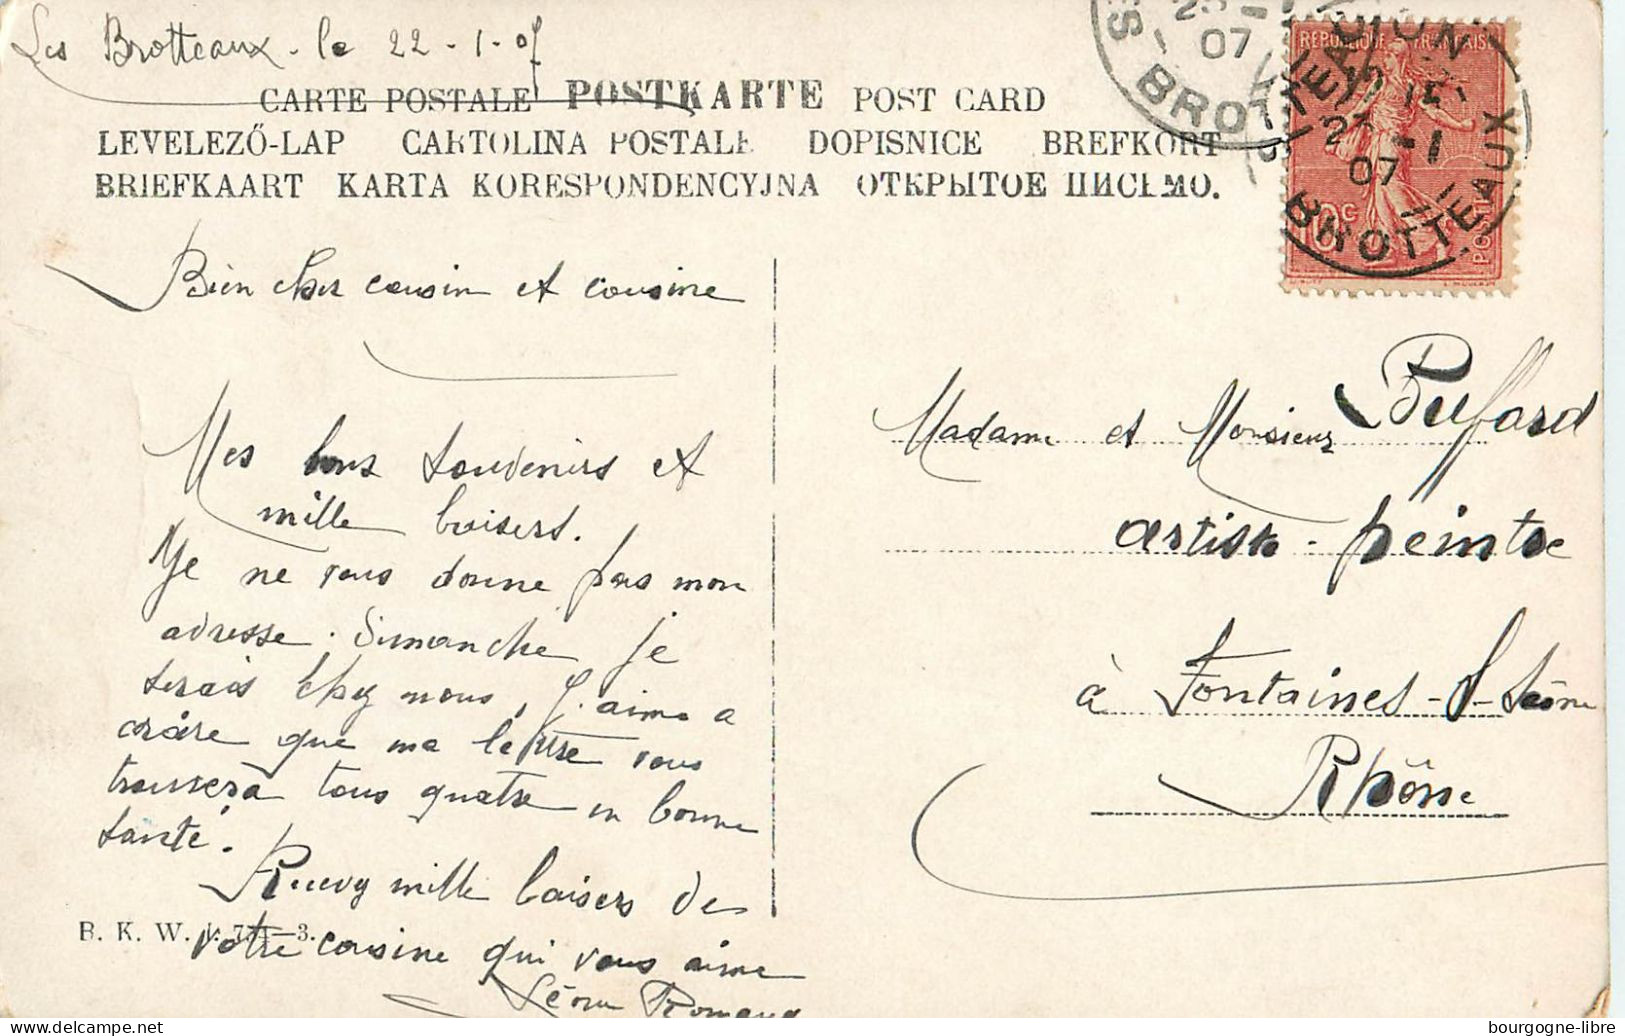 Les Brotteaux - le 22-1-07
CARTE POSTALE POSTKARTE POST CARD
LEVELEZŐ-LAP CARTOLINA POSTALE DOPISNICE BREFKORT
BRIEFKAART KARTA KORESPONDENCYJNA ОТКРЫТОЕ ПИСЬМО.
07
BROT
REPUBLIQUE FRANÇAISE
07
BROTTEAUX
10c
POSTES
Bien cher cousin et cousine
Mes bons souvenirs et
mille baisers.
Je ne vous donne pas mon
adresse. Dimanche je
serais chez nous, J'aime a
croire que ma lettre vous
trouvera tous quatre en bonne
santé.
Recevez mille baisers de
votre cousine qui vous aime
Romand
B. K. W. I. 3.
Madame et Monsieur Buffard
artiste-peintre
à Fontaines-s-Saône
Rhône
bourgogne-libre